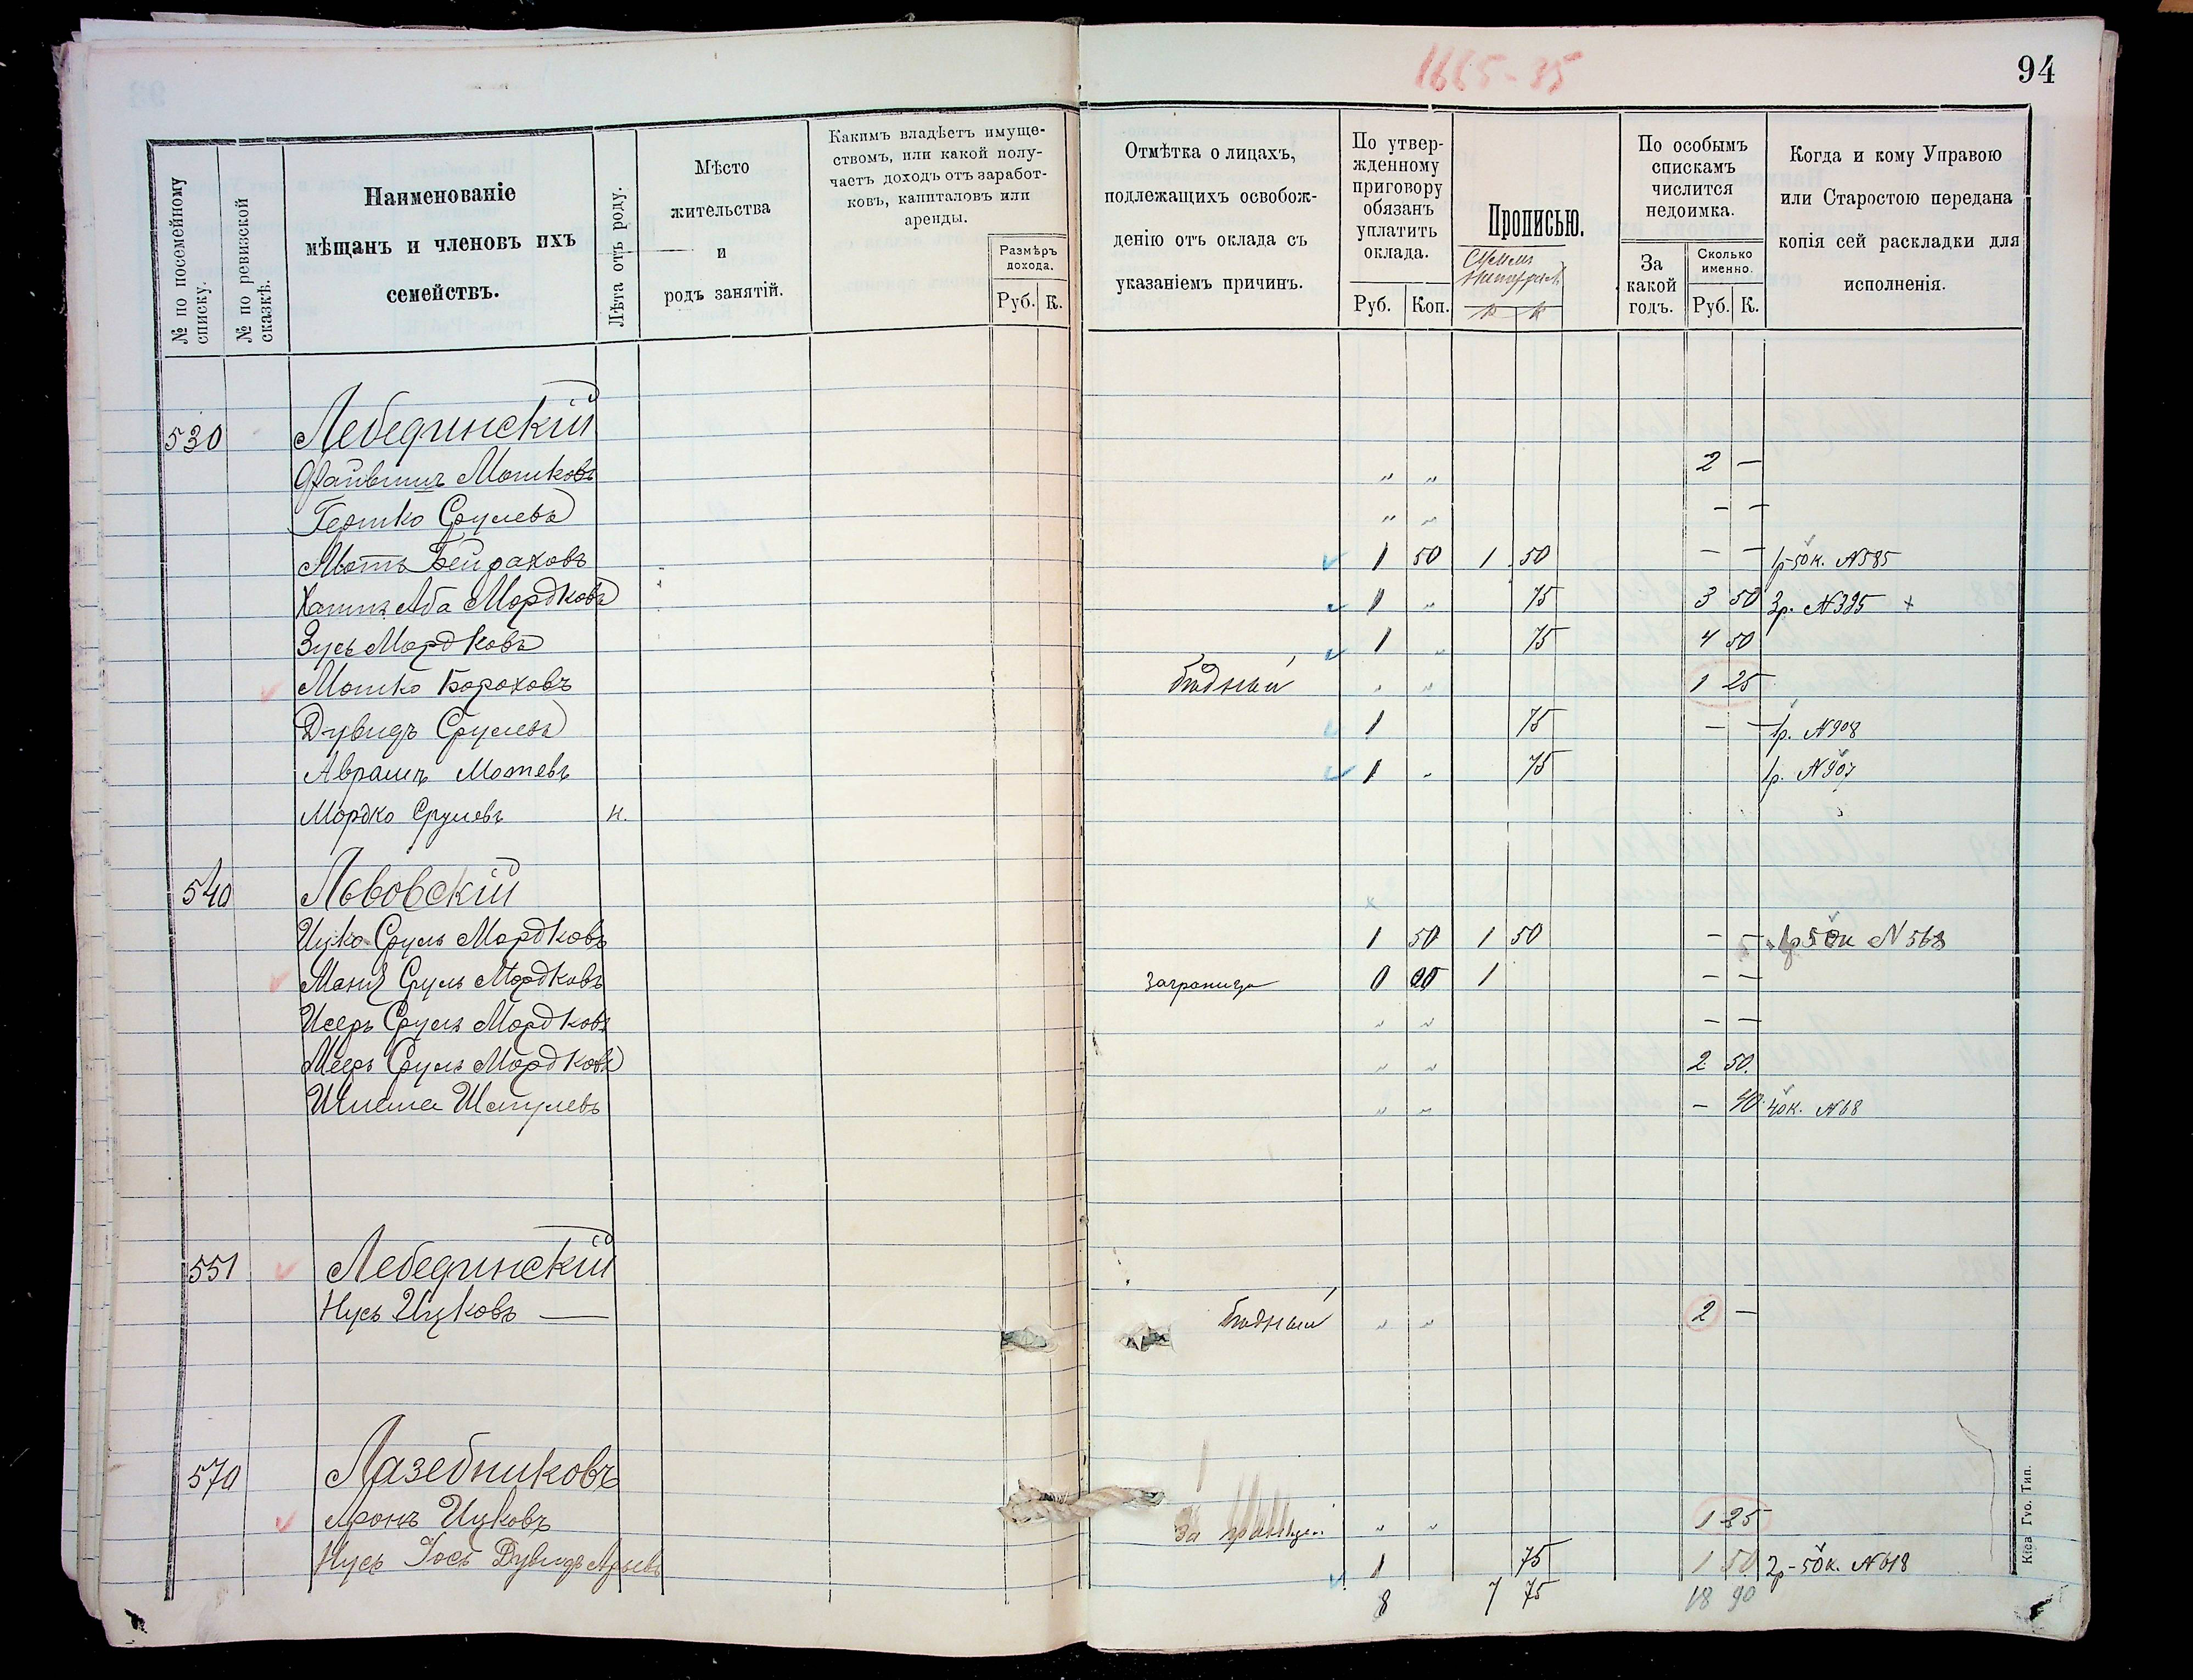 94
№ по посемейному списку.
№ по ревизской сказкѣ.
Наименованіе
мѣщанъ и членовъ ихъ
семействъ.
Лѣта отъ роду.
Мѣсто
жительства
и
родъ занятій.
Какимъ владѣетъ имуще-
ствомъ, или какой полу-
чаетъ доходъ отъ заработ-
ковъ, капиталовъ или
аренды.
Размѣръ
дохода.
Руб. К.
Отмѣтка о лицахъ,
подлежащихъ освобож-
денію отъ оклада съ
указаніемъ причинъ.
По утвер-
жденному
приговору
обязанъ
уплатить
оклада.
Руб. Коп.
Прописью.
По особымъ
спискамъ
числится
недоимка.
За
какой
годъ.
Сколько
именно.
Руб. К.
Когда и кому Управою
или Старостою передана
копія сей раскладки для
исполненія.
530 Лебединскій
Файвишъ Мошковъ „ „ 2 —
Гершко Срулевъ „ „ — —
Мотъ Бейраховъ 1 50 1 50 — — 1р-50к. N585
Хаимъ Аба Мордковъ 1 „ 75 3 50 3р. N325 +
Зусь Мордковъ 1 „ 75 4 50
Мошко Бороховъ бѣдный „ „ 1 25
Дувидъ Срулевъ 1 75 — — 1р. N908
Аврамъ Мотевъ 1 „ 75 1р. N907
Мордко Срулевъ н.
540 Львовскій
Ицко Сруль Мордковъ 1 50 1 50 — — 1р50к N568
Сруль Мордковъ заграницу 1 — —
Исеръ Сруль Мордковъ „ „ — —
Мееръ Сруль Мордковъ „ „ 2 50.
Шмулевъ „ „ — 40. 40к. N68
551 Лебединскій
Нусь Ицковъ — бѣдный „ „ 2 —
570 Лазебниковъ
Аронъ Ицковъ за границей „ „ 1 25
Нусь Іось Дувидъ Арьевъ 1 75 1 50 2р-50к. N618
8 7 75 18 90
Тип.